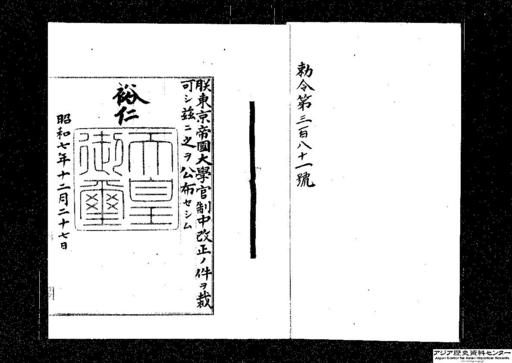 勅令第三百八十一號
朕東京帝國大學官制中改正ノ件ヲ裁
可シ茲ニ之ヲ公布セシム
裕仁
天皇
御璽
昭和七年十二月二十七日
アジア歴史資料センター
Japan Center for Asian Historical Records